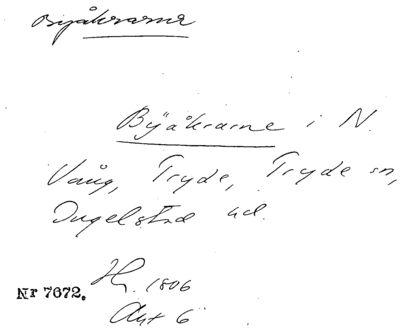 Byåkrarne
Byåkrarne i N.
Vång, Tryde, Tryde sn,
Ingelstad hd.
1806
Nr 7672.
Akt 6